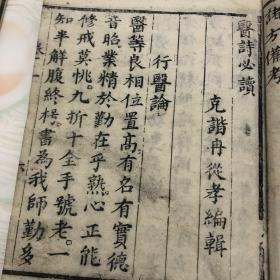 醫詩必讀
克諧冉從孝編輯
行醫論
醫等良相位置高有名有實德
音昭業精於勤在乎熟心正能
修戒莫恌九折十全手號老一
知半解腹終枵書為我師勤多
卷一